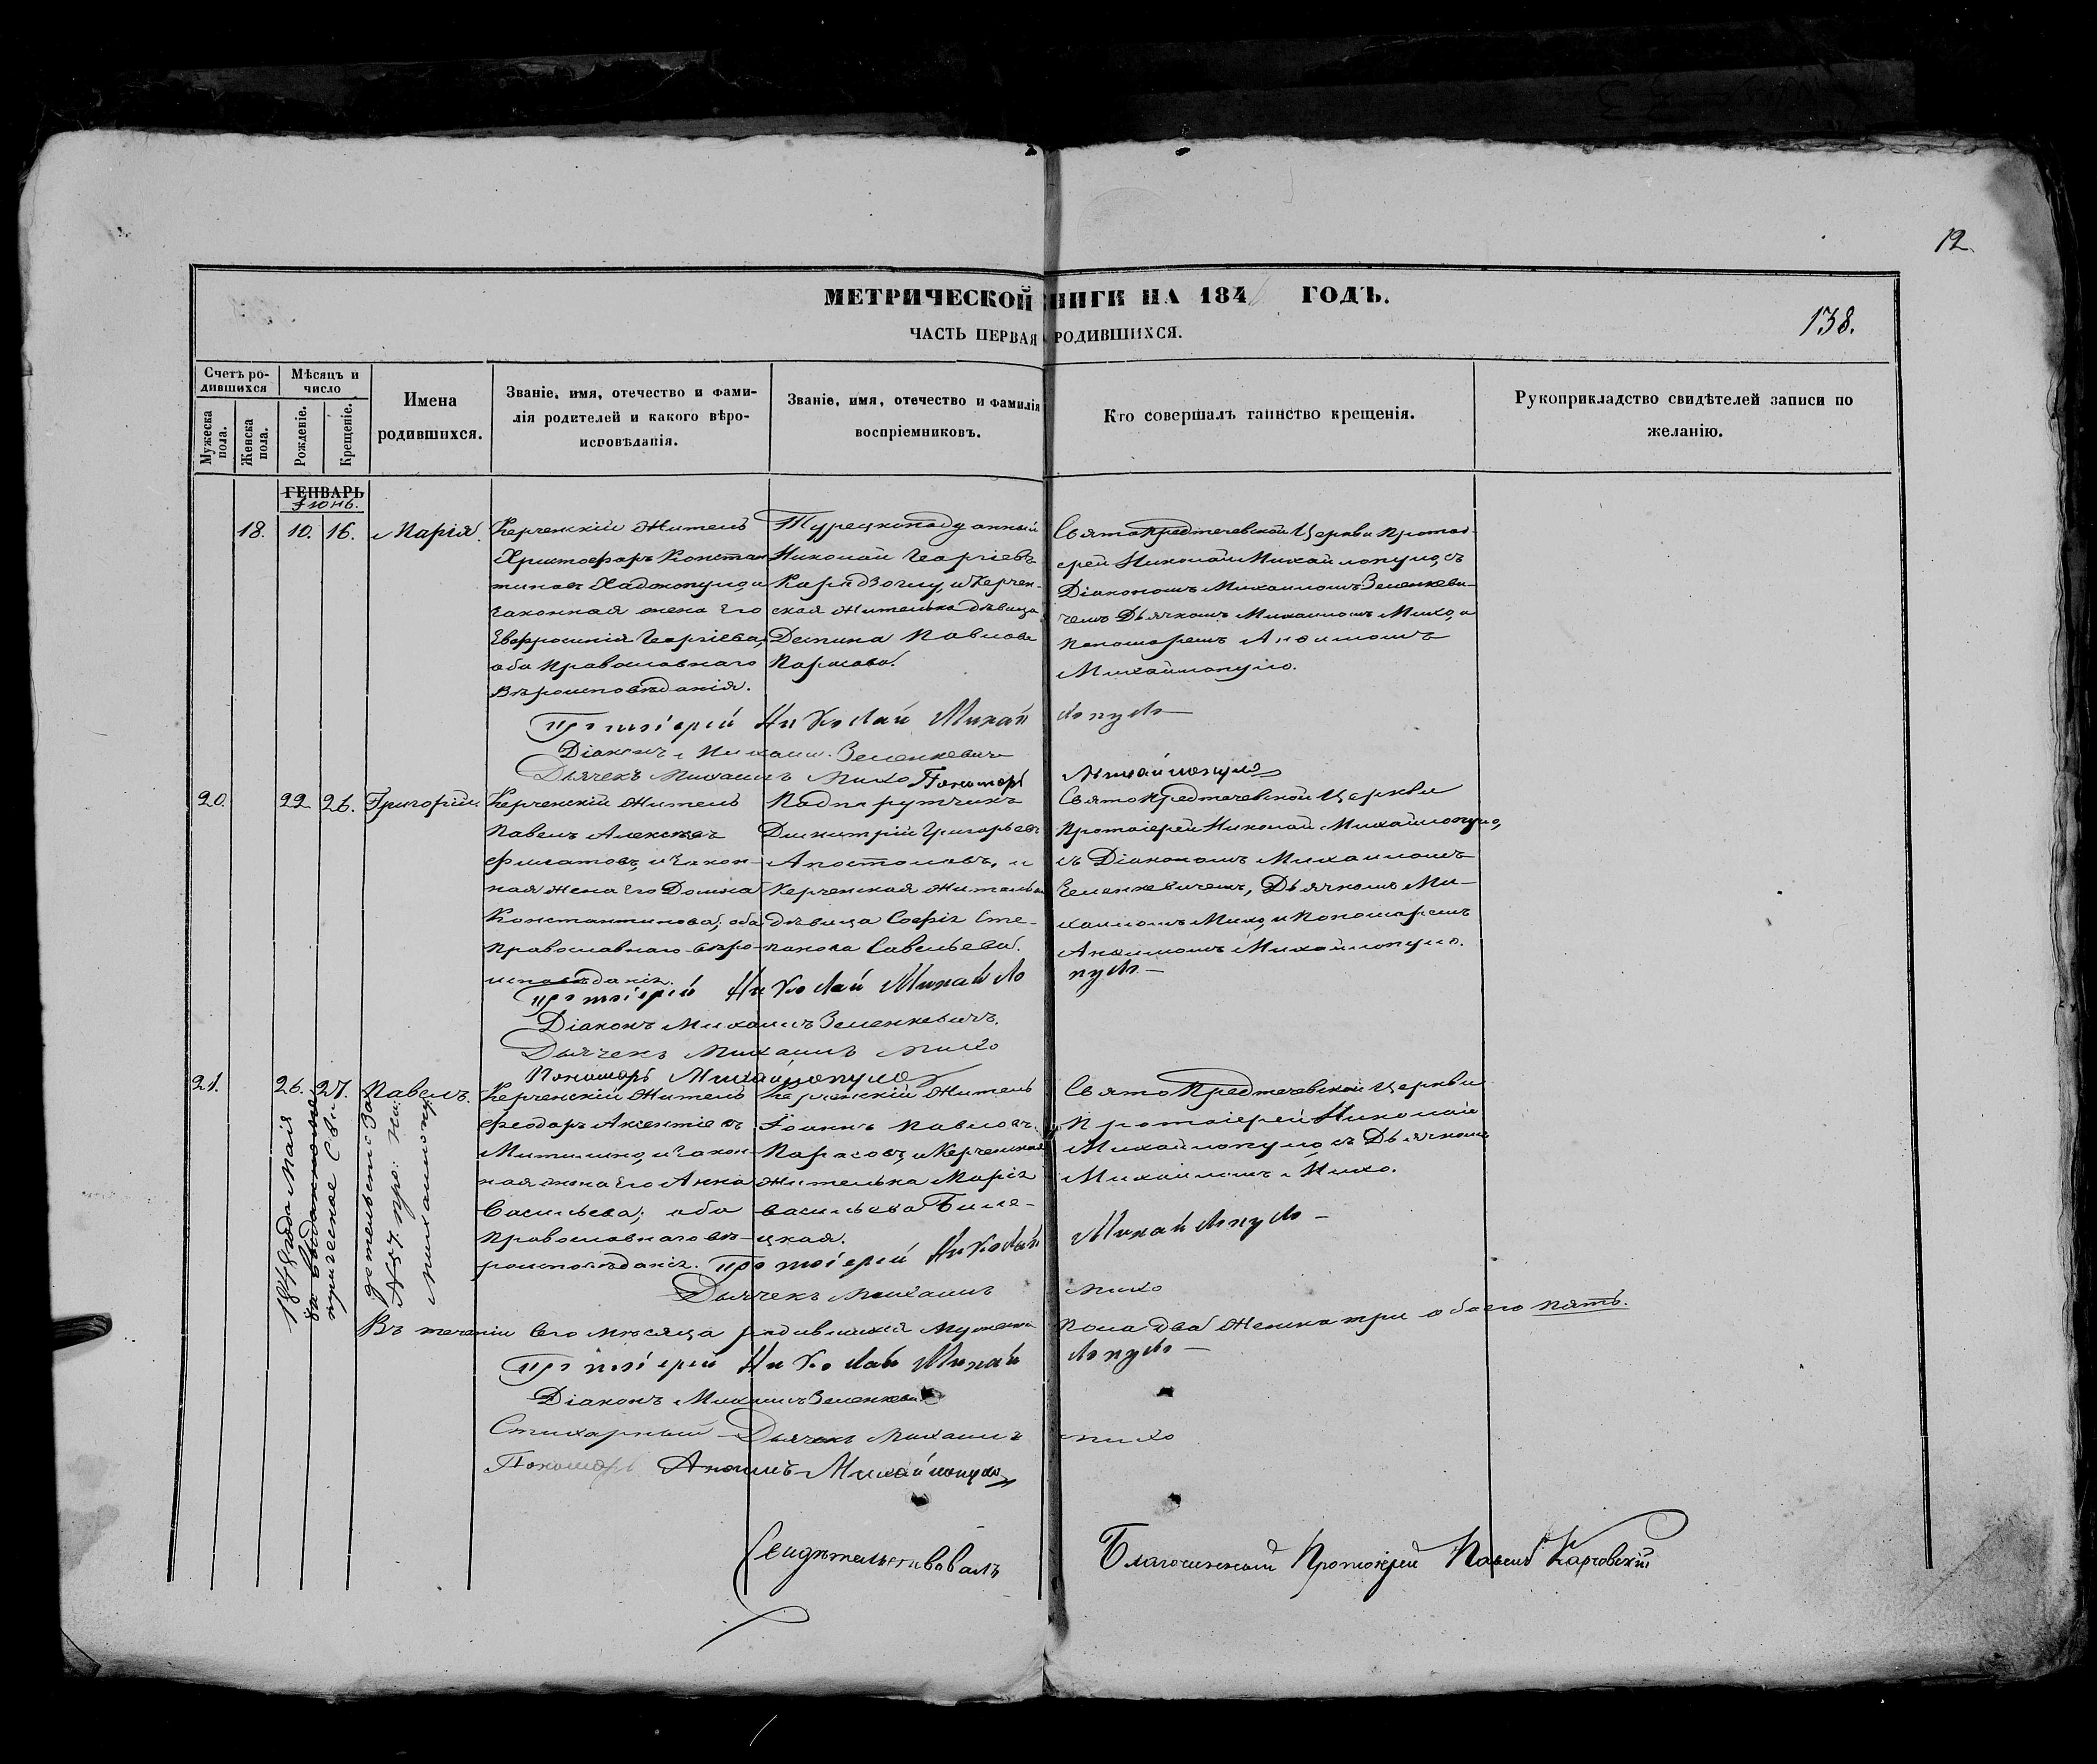 12.
МЕТРИЧЕСКОЙ КНИГИ НА 184 ГОДЪ.
138.
ЧАСТЬ ПЕРВАЯ О РОДИВШИХСЯ.
Счетъ ро-
дившихся
Мѣсяцъ и
число
Мужеска пола.
Женска пола.
Рожденіе.
Крещеніе.
Имена
родившихся.
Званіе, имя, отечество и фами-
лія родителей и какого вѣро-
исповѣданія.
Званіе, имя, отечество и фамилія
воспріемниковъ.
Кто совершалъ таинство крещенія.
Рукоприкладство свидѣтелей записи по
желанію.
ГЕНВАРЬ
Іюнь.
18. 10. 16. Марія.
Керченскій житель
Христофоръ Констан
тиновъ Хаджопуло, и
законная жена его
Евфросинія Георгіева,
оба православнаго
вѣроисповѣданія.
Турецкоподданный
Николай Георгіевъ
Карадзоглу, и Керчен-
ская жителька дѣвица
Деспина Павлова
Святопредтечевской Церкви Протоі-
ерей Николай Михайлопуло, съ
Діакономъ Михаиломъ Зеленкеви-
чемъ Дьячкомъ Михаиломъ Михо, и
Пономаремъ Анѳимомъ
Михайлопуло.
Протоіерей Николай Михайлопуло
Діаконъ Михаилъ Зеленкевичъ
Дьячекъ Михаилъ Михо Пономарь Михайлопуло
20. 22. 26. Григорій
Керченскій житель
Павелъ Алексѣевъ
Филатовъ, и закон-
ная жена его Домна
Константинова, оба
православнаго вѣро-
исповѣданія.
Подпорутчикъ
Димитрій Григорьевъ
Апостоловъ, и
Керченская жителька
дѣвица Софія Сте-
панова Савельева.
Святопредтечевской Церкви
Протоіерей Николай Михайлопуло,
съ Діакономъ Михаиломъ
Зеленкевичемъ, Дьячкомъ Ми-
хаиломъ Михо, и Пономаремъ
Анѳимомъ Михайлопуло.
Протоіерей Николай Михайлопуло
Діаконъ Михаилъ Зеленкевичъ.
Дьячекъ Михаилъ Михо
Пономарь Михайлопуло
21. 26. 27. Павелъ.
Керченскій житель
Феодоръ
Митилино, и закон-
ная жена его Анна
Васильева, оба
православнаго вѣ-
роисповѣданія.
Керченскій житель
Іоаннъ Павловъ
и Керченская
жителька Марія
Васильева Биле-
цкая.
Святопредтечевской Церкви
Протоіерей Николай
Михайлопуло, съ Дьячкомъ
Михаиломъ Михо.
1848 года Маія
за выданномъ ме
трическое Сви
детельство За
№ 57. про: Ни:
Михаилопу:
Протоіерей Николай Михайлопуло
Дьячекъ Михаилъ Михо
Въ теченіи сего мѣсяца родившихся мужеска пола два женска три обоего пять.
Протоіерей Николай Михайлопуло
Діаконъ Михаилъ Зеленкевичъ
Стихарный Дьячекъ Михаилъ Михо
Пономарь Анѳимъ Михайлопуло
Свидѣтельствовалъ Благочинный Протоіерей Павелъ